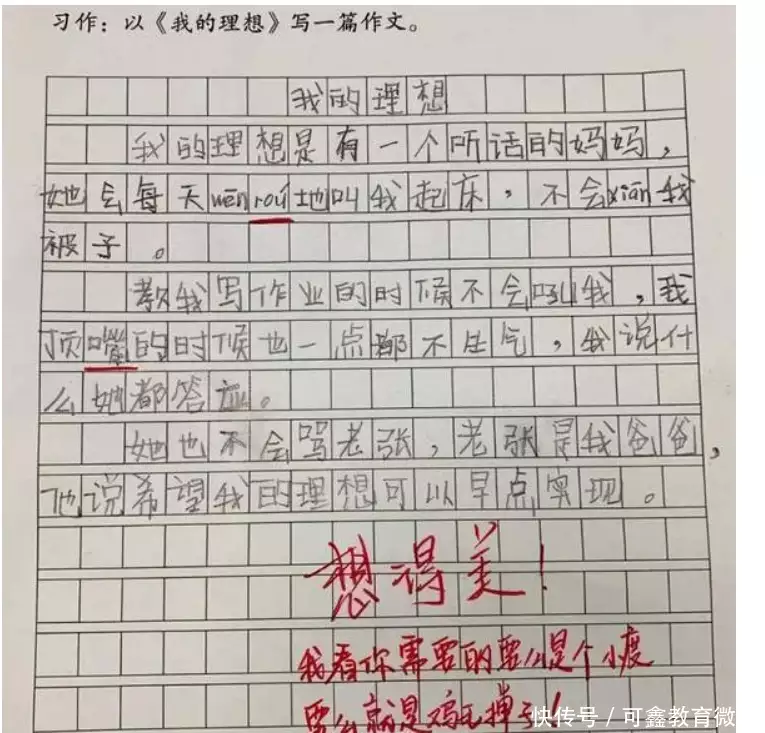 习作：以《我的理想》写一篇作文。
我的理想
我的理想是有一个听话的妈妈，
她会每天wēnroú地叫我起床，不会xiān我
被子。
教我写作业的时候不会吼我，我
顶嘴的时候也一点都不生气，我说什
么她都答应。
她也不会骂老张，老张是我爸爸，
他说希望我的理想可以早点实现。
想得美！
我看你需要的要么是个小度
要么就是鸡毛掸子！
快传号／可鑫教育微